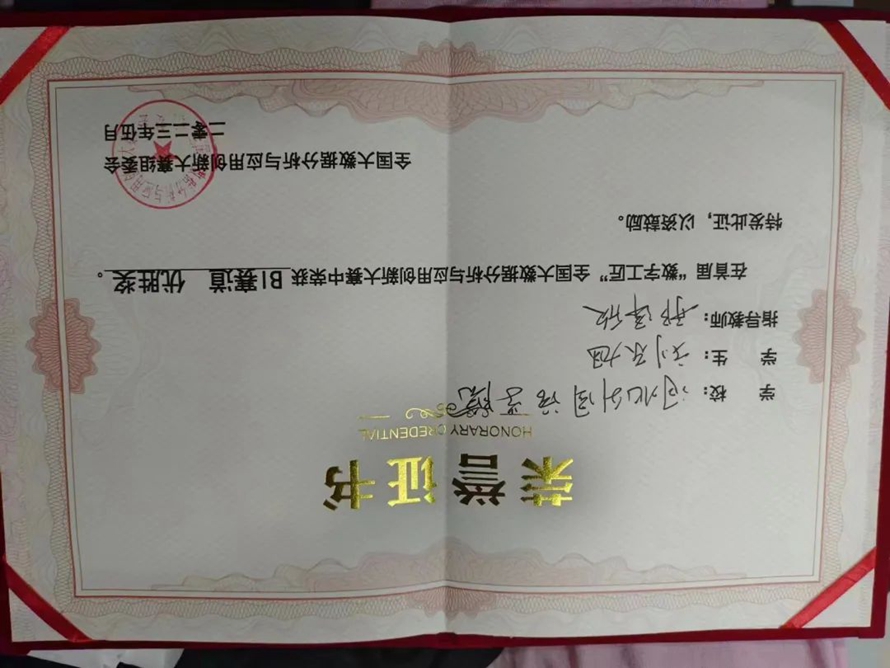 荣誉证书
HONORARY CREDENTIAL
学 校：河北外国语学院
学 生：刘东旭
指导教师：
在首届“数字工匠”全国大数据分析与应用创新大赛中荣获 BI赛道 优胜奖。
特发此证，以资鼓励。
全国大数据分析与应用创新大赛组委会
二零二三年伍月